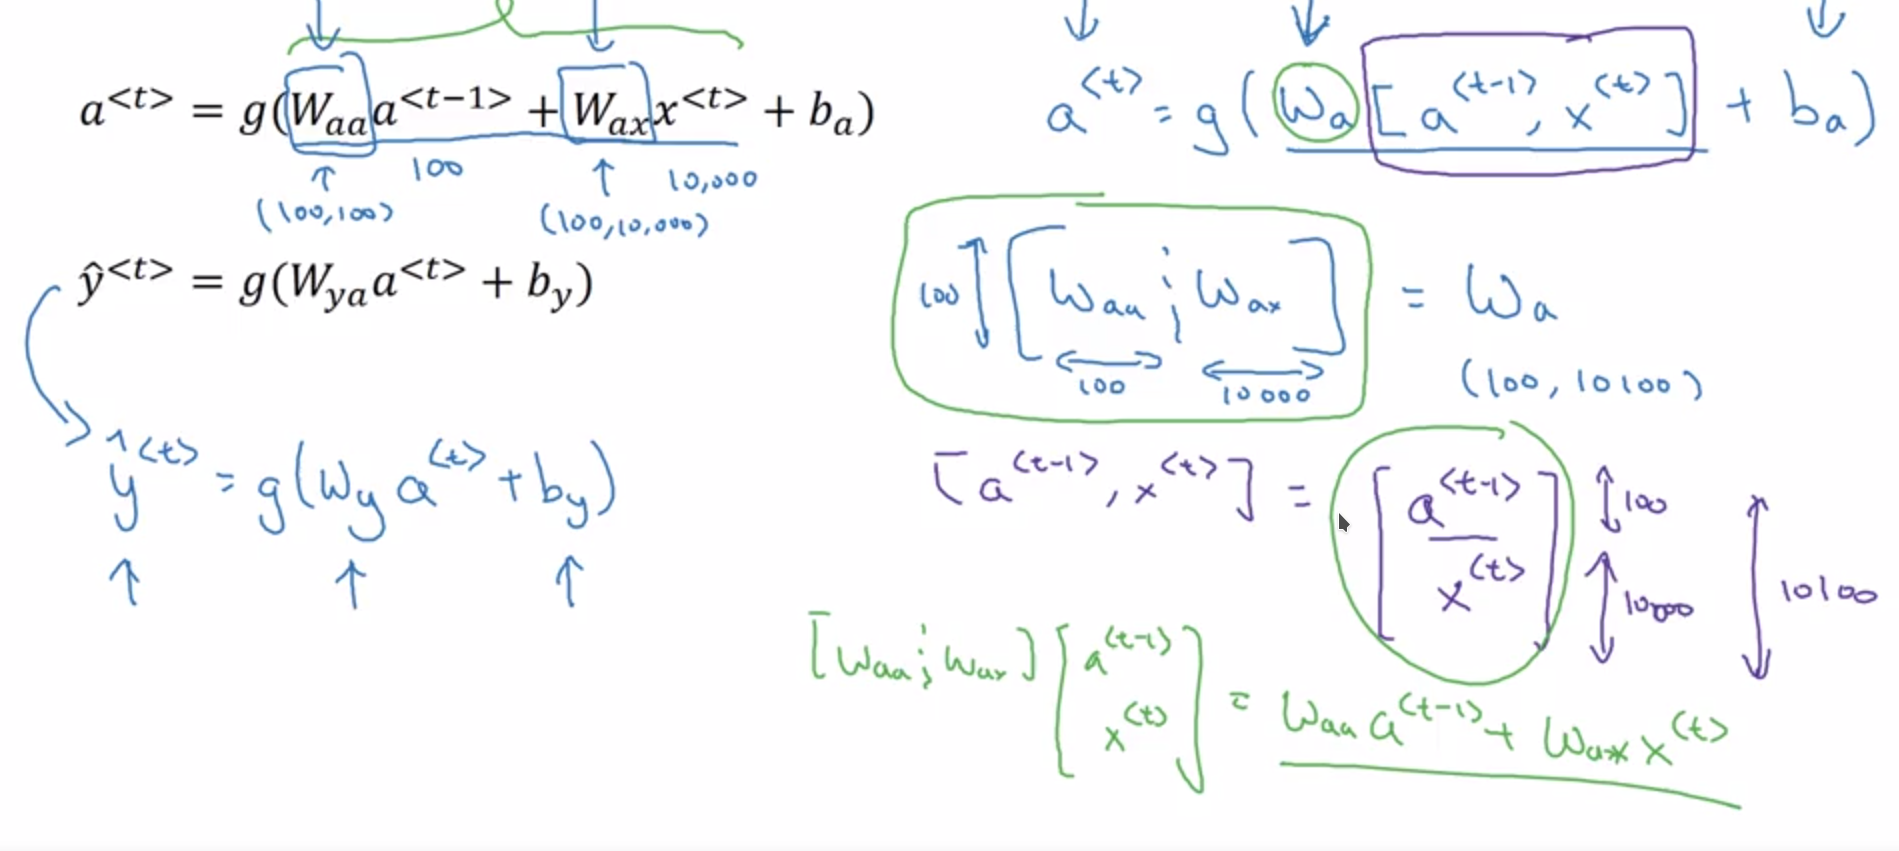 a<t> = g(W_aa a<t−1> + W_ax x<t> + b_a)
100
10,000
(100,100)
(100,10,000)
ŷ<t> = g(W_ya a<t> + b_y)
ŷ<t> = g(W_y a<t> + b_y)
a<t> = g(W_a [a<t-1>, x<t>] + b_a)
100 [W_aa ; W_ax] = W_a
100
10000
(100, 10100)
[a<t-1>, x<t>] = [a<t-1>
x<t>]
100
10000
10100
[W_aa ; W_ax] [a<t-1>
x<t>] = W_aa a<t-1> + W_ax x<t>